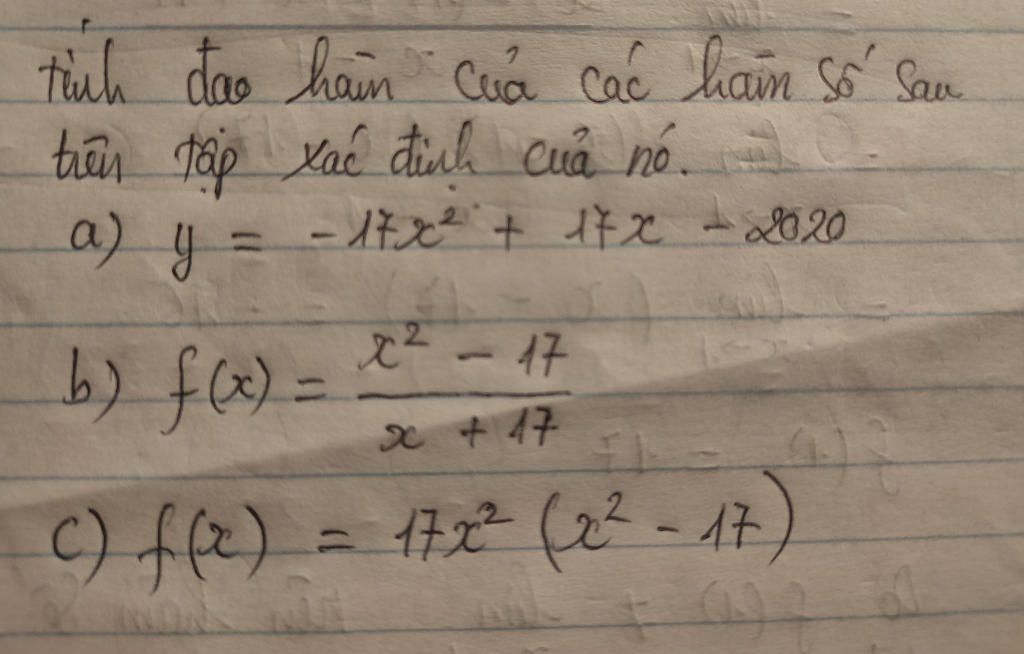 tính đạo hàm của các hàm số sau
trên tập xác định của nó.
a) y = -17x² + 17x - 2020
b) f(x) = (x² - 17) / (x + 17)
c) f(x) = 17x² (x² - 17)